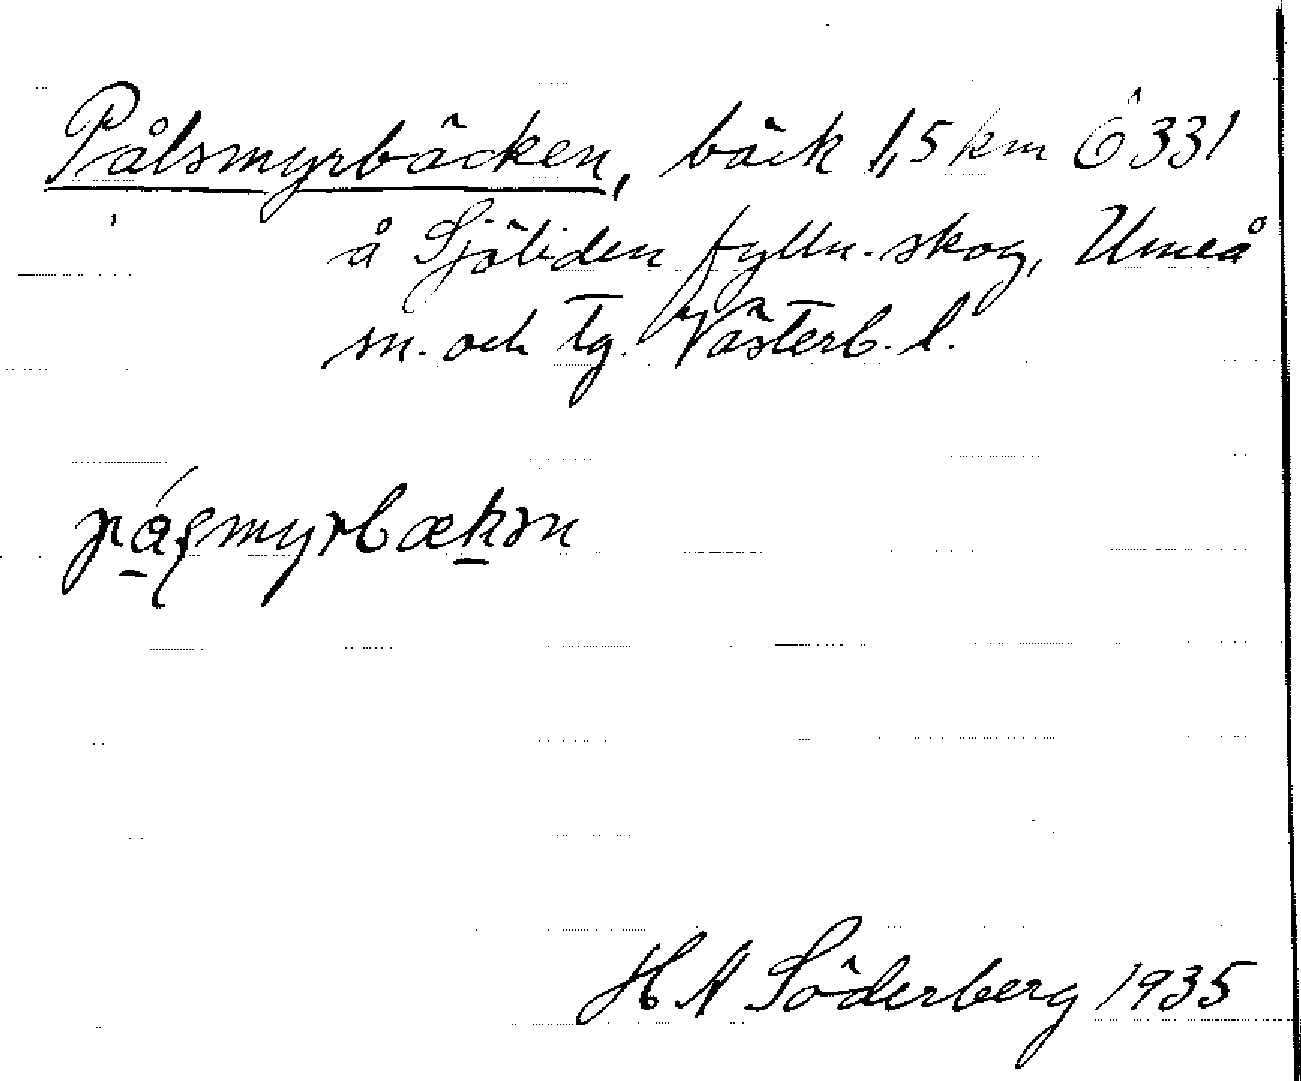 Pålsmyrbäcken, bäck 1,5 km Ö 331
å Sjöliden fylln.-skog, Umeå
sn. och tg. Västerb. l.
H A Söderberg 1935